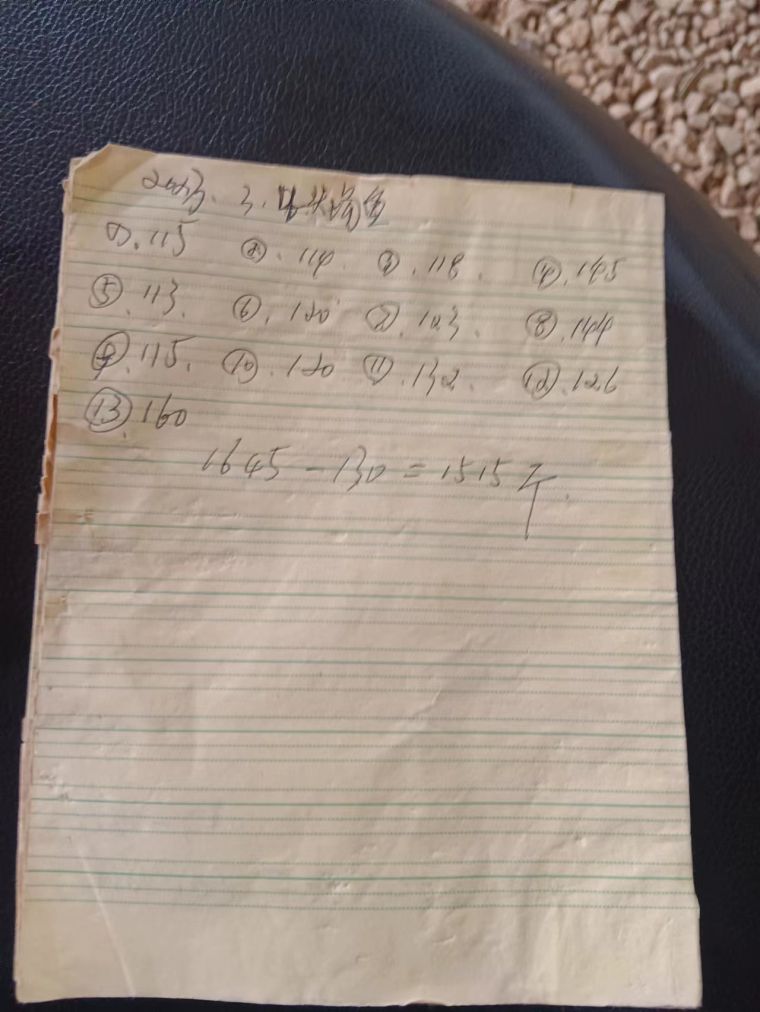 2023. 3.
①. 115 ②. 114 ③. 118. ④. 145
⑤. 113. ⑥. 120 ⑦. 123. ⑧. 144
⑨. 115. ⑩. 120 ⑪. 132. ⑫. 126
⑬. 160
1645 - 130 = 1515斤.